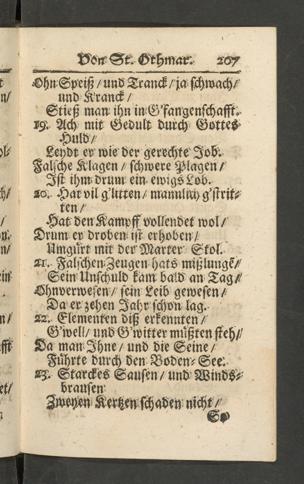 Von St. Othmar. 207
Ohn Speiß / und Tranck / ja schwach /
und Kranck /
Stieß man ihn in G'fangenschafft.
19. Ach mit Gedult durch Gottes
Huld /
Leydt er wie der gerechte Job.
Falsche Klagen / schwere Plagen /
Ist ihm drum ein ewigs Lob.
20. Hat vil g'litten / mannlich g'strit-
ten /
Hat den Kampff vollendet wol /
Drum er droben ist erhoben /
Umgürt mit der Marter Stol.
21. Falschen Zeugen hats mißlunge /
Sein Unschuld kam bald an Tag /
Ohnverwesen / sein Leib gewesen /
Da er zehen Jahr schon lag.
22. Elementen diß erkennten /
G'well / und G'witter müßten steh /
Da man Ihne / und die Seine /
Führte durch den Boden-See.
23. Starckes Sausen / und Winds-
brausen
Zweyen Kertzen schaden nicht /
So